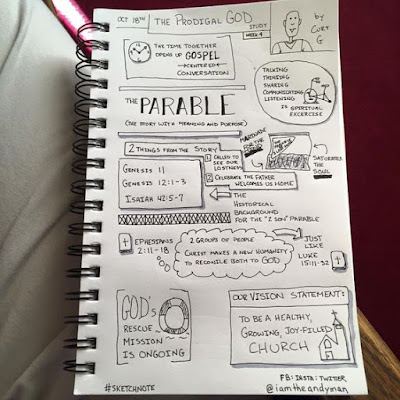 OCT 18TH
THE PRODIGAL GOD
STUDY
WEEK 4
by
CURT
G
THE TIME TOGETHER
OPENS UP GOSPEL
CENTERED
CONVERSATION
TALKING
THINKING
SHARING
COMMUNICATING
LISTENING
IS SPIRITUAL
EXCERCISE
THE PARABLE
(ONE STORY WITH MEANING AND PURPOSE)
MARINADE
FOR THE
SATURATES
THE
SOUL
2 THINGS FROM THE STORY
1 CALLED TO
SEE OUR
LOSTNESS
2 CELEBRATE THE FATHER
WELCOMES US HOME
GENESIS 11
GENESIS 12:1-3
ISAIAH 42:5-7
THE
HISTORICAL
BACKGROUND
FOR THE "2 SON" PARABLE
EPHESIANS
2:11-18
2 GROUPS OF PEOPLE
CHRIST MAKES A NEW HUMANITY
TO RECONCILE BOTH TO GOD
JUST
LIKE
LUKE
15:11-32
GOD'S
RESCUE
MISSION
IS ONGOING
OUR VISION STATEMENT:
TO BE A HEALTHY,
GROWING, JOY-FILLED
CHURCH
#SKETCHNOTE
FB: INSTA: TWITTER,
@iamtheandyman